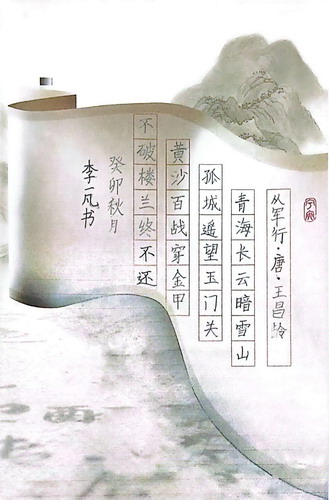 从军行·唐·王昌龄
青海长云暗雪山
孤城遥望玉门关
黄沙百战穿金甲
不破楼兰终不还
癸卯秋月
李一凡书